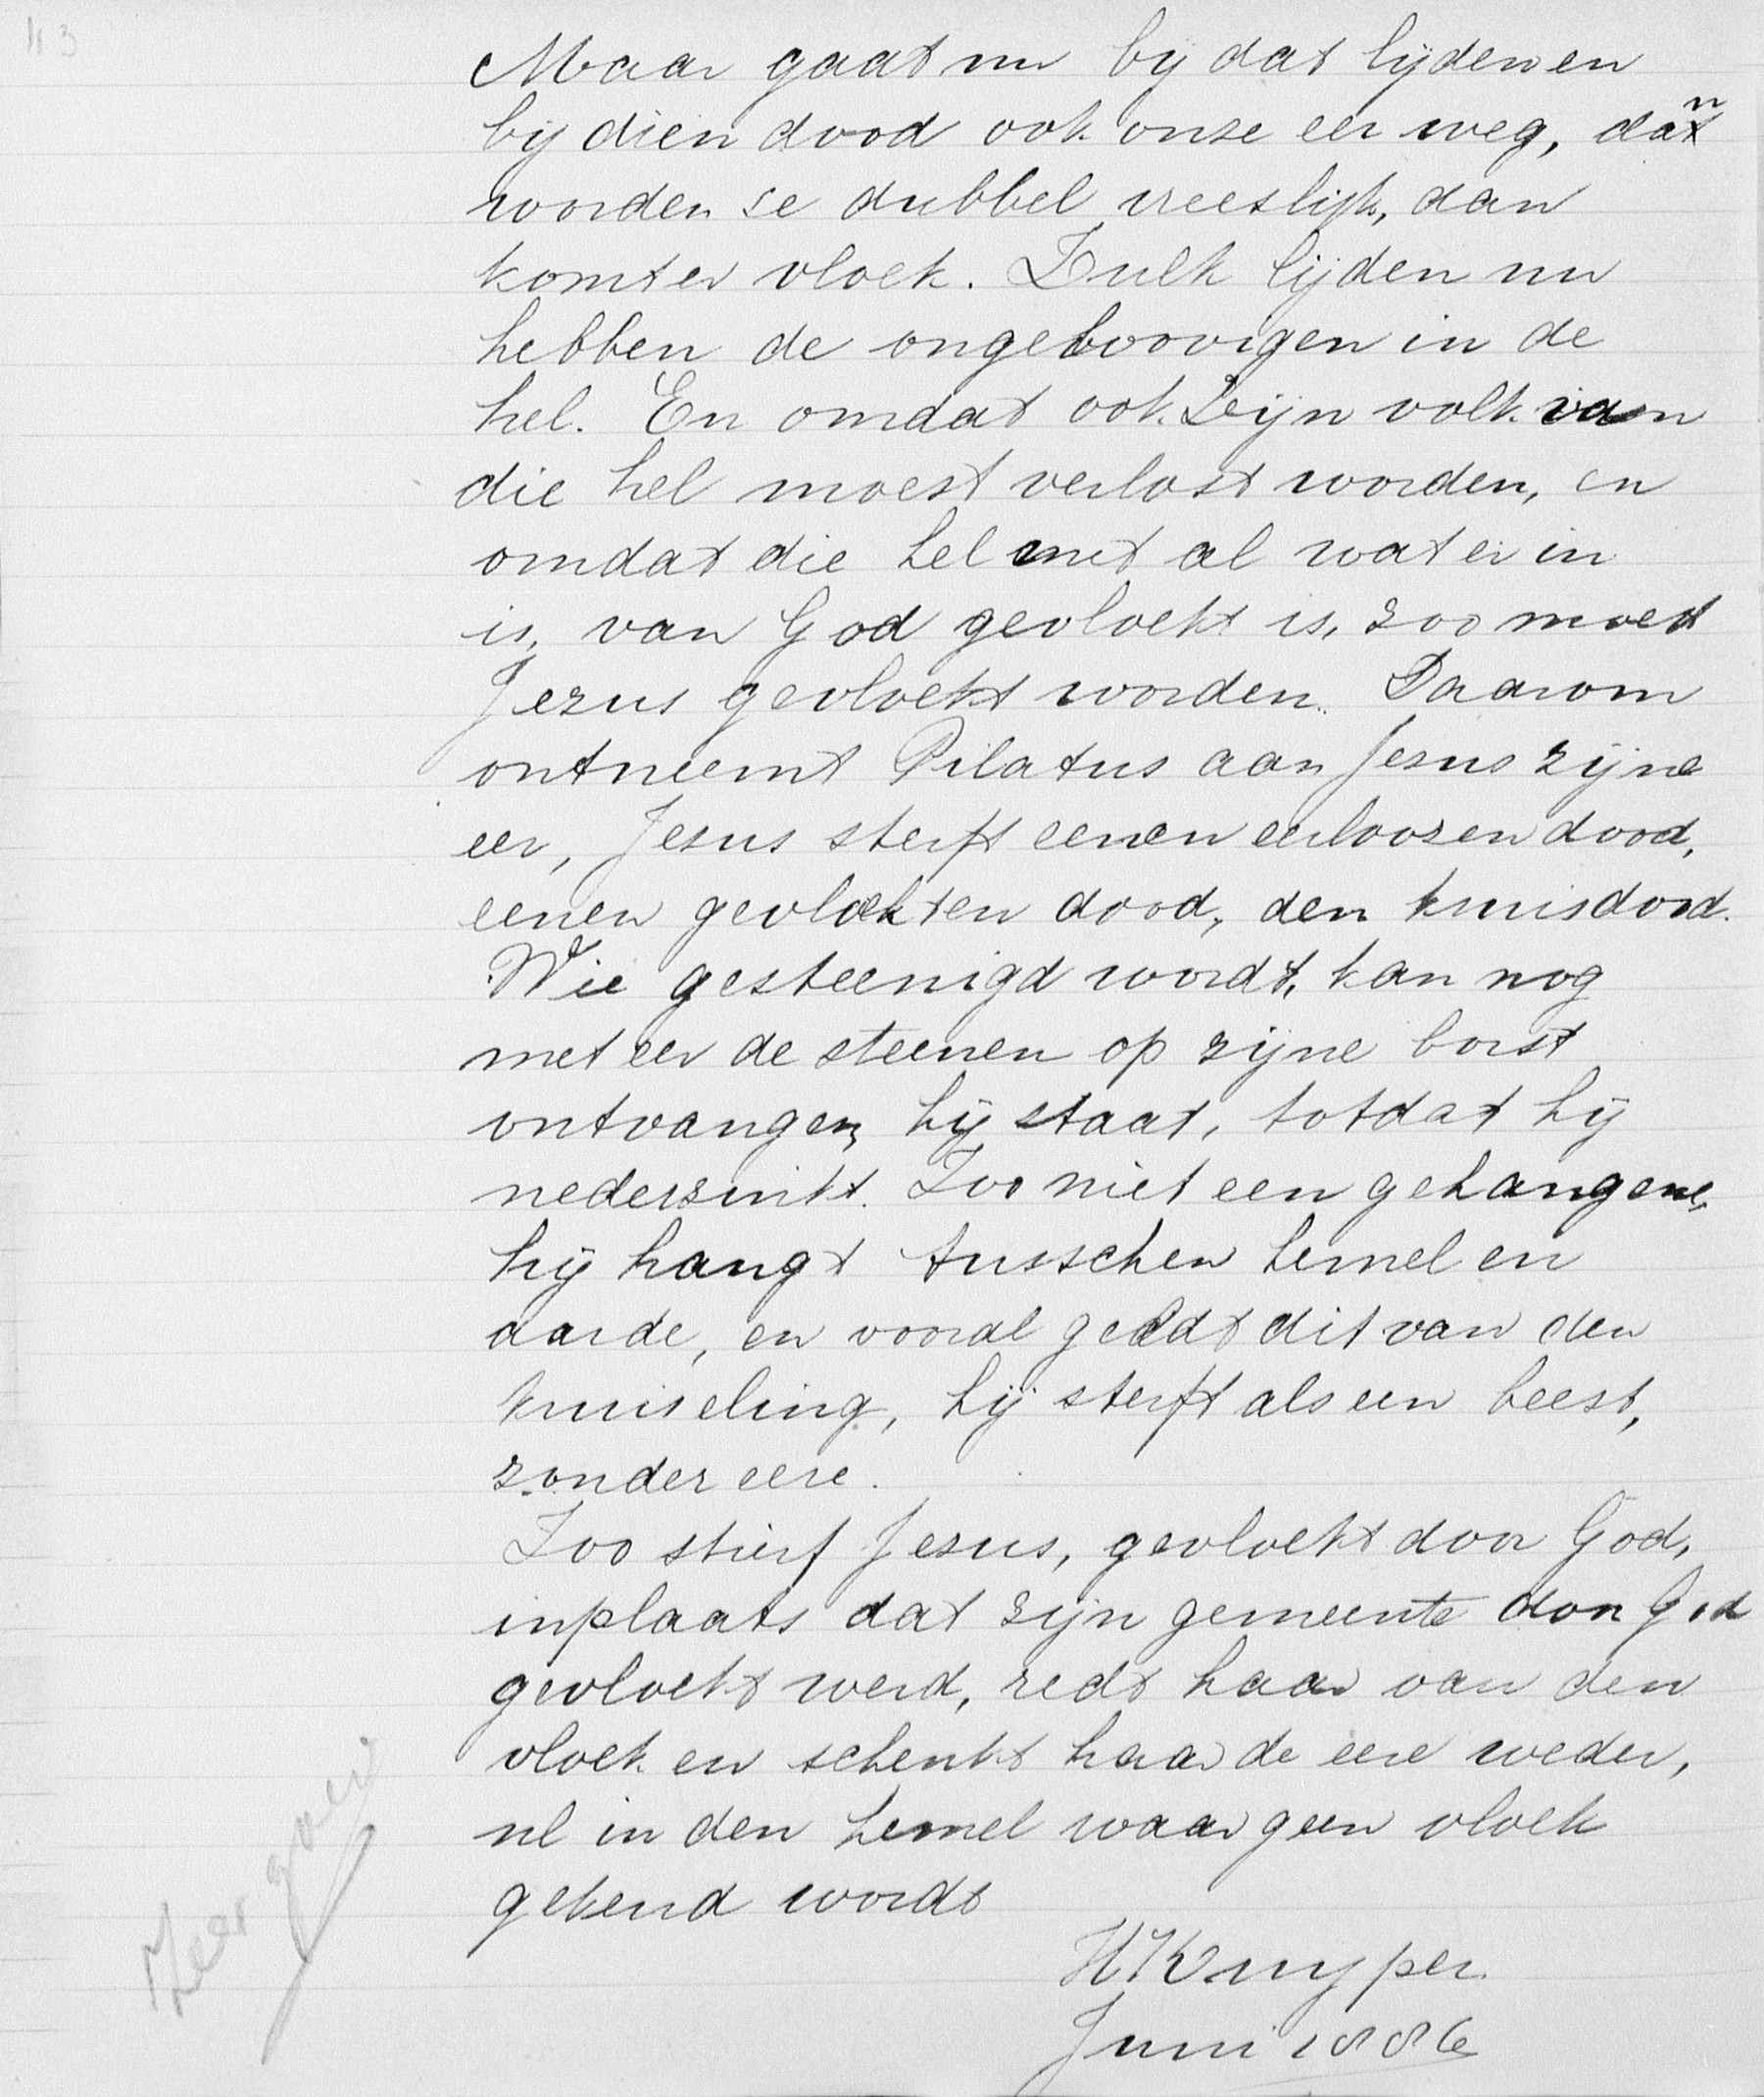 Maar gaat nu bij dat lijden en
bij dien dood ook onze eer weg, dan
worden ze dubbel vreeslijk, dan
komt er vloek. Zulk lijden nu
hebben de ongeloovigen in de
hel. En omdat ook Zijn volk van
die hel moest verlost worden, en
omdat die hel met al wat er in
is, van God gevloekt is, zoo moest
Jezus gevloekt worden. Daarom
ontneemt Pilatus aan Jezus zijne
eer, Jezus sterft eenen eerloozen dood,
eenen gevloekten dood, den kruisdood.
Wie gesteenigd wordt, kan nog
met eer de steenen op zijne borst
ontvangen, hij staat, totdat hij
nederzinkt. Zoo niet een gehangene,
hij hangt tusschen hemel en
aarde, en vooral geldt dit van den
kruiseling, hij sterft als een beest,
zonder eere.
Zoo stierf Jezus, gevloekt door God,
inplaats dat zijn gemeente door God
gevloekt werd, redt haar van den
vloek en schenkt haar de eere weder,
nl in den hemel waar geen vloek
gekend wordt
H Kuyper.
Juni 1886
Zeer goed